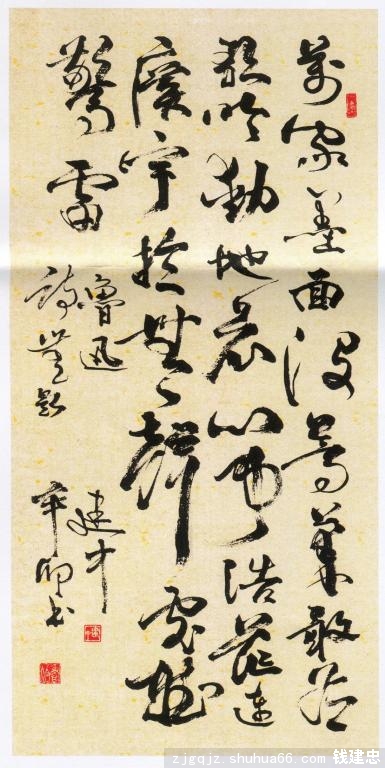 萬家墨面没蒿萊敢有
歌吟動地哀心事浩茫連
廣宇於無聲處聽
驚雷
魯迅
詩無題
建
辛卯書
zjgqjz.shuhua66.com 钱建忠